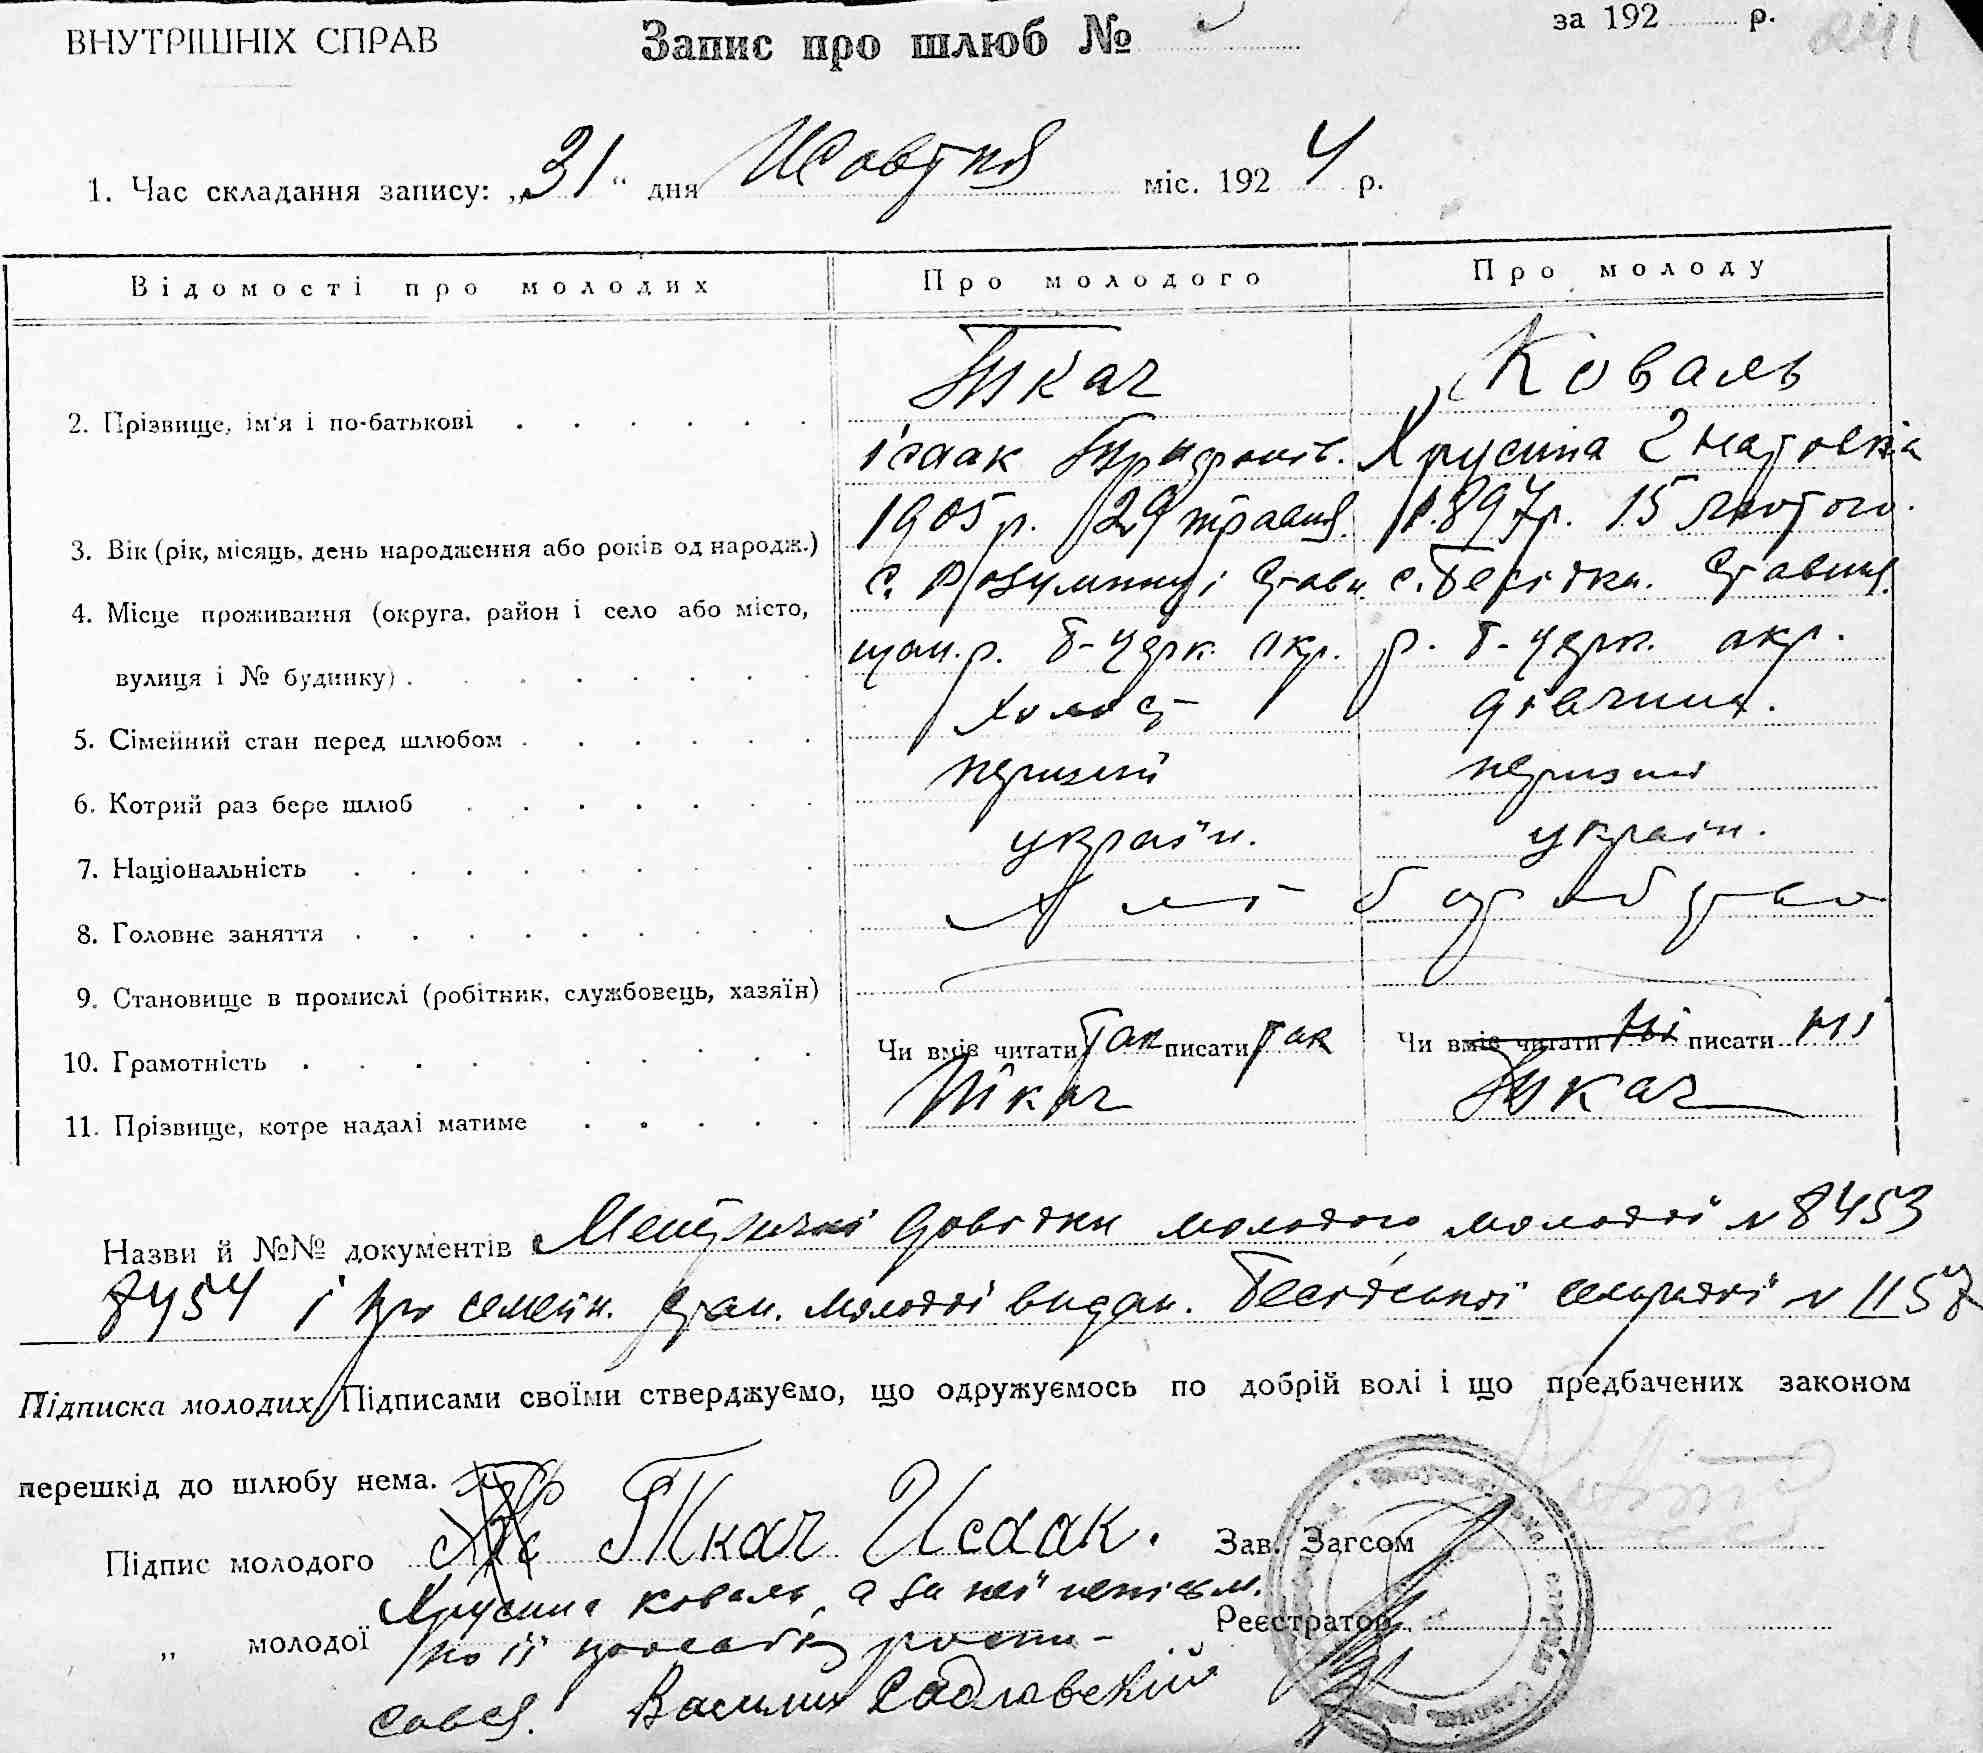 ВНУТРІШНІХ СПРАВ
Запис про шлюб №
за 192 р.
241
1. Час складання запису: „31“ дня Жовтня міс. 1924 р.
Відомості про молодих Про молодого Про молоду
Ткач Коваль
2. Прізвище, ім'я і по-батькові
ісаак Трифонів. Хрусина Гнатовна
1905 р. 29 травня. 1897 р. 15 лютого.
3. Вік (рік, місяць, день народження або років од народж.)
с. Розумниці Стави с. Бесідки. Ставищ.
4. Місце проживання (округа, район і село або місто,
щан. р. Б-Церк. окр. р. Б-Церк. окр.
вулиця і № будинку)
холост дівчина.
5. Сімейний стан перед шлюбом
перший перший
6. Котрий раз бере шлюб
україн. україн.
7. Національність
хліборобство
8. Головне заняття
9. Становище в промислі (робітник, службовець, хазяїн)
Чи вміє читати Так писати Так Чи вміє читати Ні писати Ні
10. Грамотність
Ткач Ткач
11. Прізвище, котре надалі матиме
Назви й №№ документів Метричні довідки молодого, молодої N 8453
8454 і про семейн. стан. молодої видан. Бесідської сельради N 1157
Підписка молодих. Підписами своїми стверджуємо, що одружуємось по добрій волі і що предбачених законом
перешкід до шлюбу нема.
Підпис молодого Ткач Исаак.
Зав. Загсом
Хрусина Коваль, а за неї неписьм.
„ молодої по її просьбі роспи-
Реєстратор
сався. Василий